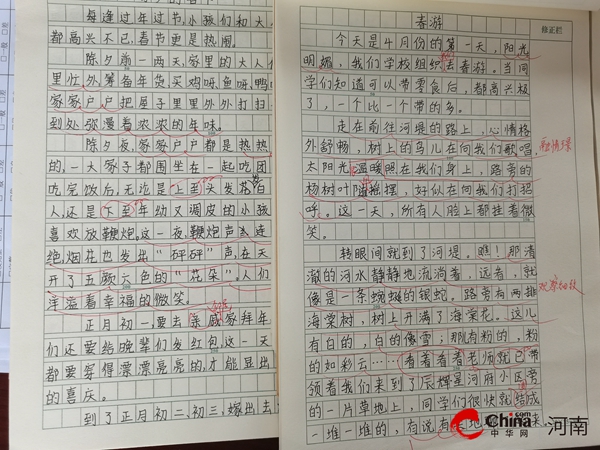 每逢过年过节,小孩们和大人
都高兴不已,春节更是热闹。
除夕前一两天,家里的大人
里忙外筹备年货买鸡呀、鱼呀、鸭
家家户户把屋子里里外外打扫
到处弥漫着浓浓的年味。
除夕夜,家家户户都是热热
的,一大家子都围坐在一起吃团
吃完饭后,无论是上到头发花白
人,还是下至年幼又调皮的小孩
喜欢放鞭炮。这一夜,鞭炮声连
绝,烟花也发出“砰砰”声,在天
开了五颜六色的“花朵”,人们
洋溢着幸福的微笑。
正月初一,要去亲戚家拜年
们还要给晚辈们发红包,这一天
都要穿得漂漂亮亮的,才能显出
的喜庆。
到了正月初二、初三,嫁出去
春游
修正栏
今天是4月份的第一天,阳光
明媚,我们学校组织去春游。当同
学们知道可以带零食后,都高兴极
了,一个比一个带的多。
走在前往河堤的路上,心情格
外舒畅,树上的鸟儿在向我们歌唱,
太阳光温暖明在我们身上,路旁的
杨树叶随摇摆,好似在向我们打招
呼。这一天,所有人脸上都挂着微
笑。
转眼间就到了河堤。瞧!那清
澈的河水静静地流淌着,远看,就
像是一条蜿蜒的银蛇。路旁有两排
海棠树,树上开满了海棠花。这儿
有白的,白的像雪;那儿有粉的,粉
的如彩云……看着看着老师就已带
领着我们来到了辰辉星河府小区旁
的一片草地上,同学们很快就结成
一堆一堆的,有说有
China.com
中华网
河南